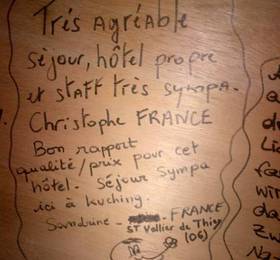 Très agréable
séjour, hôtel propre
et staff très sympa.
Christophe FRANCE
Bon rapport
qualité/prix pour cet
hôtel. Séjour sympa
ici à Kuching.
Sandrine - FRANCE
ST Vallier de Thiey
(06)